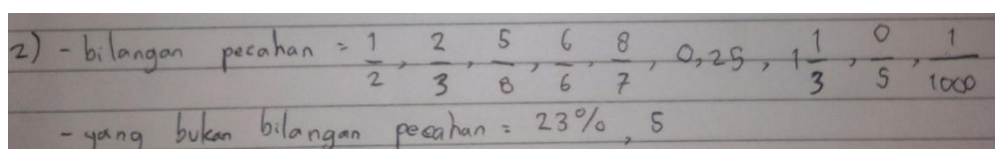 2) - bilangan pecahan = 1/2, 2/3, 5/8, 6/6, 8/7, 0,25, 1 1/3, 0/5, 1/1000
- yang bukan bilangan pecahan = 23%, 5